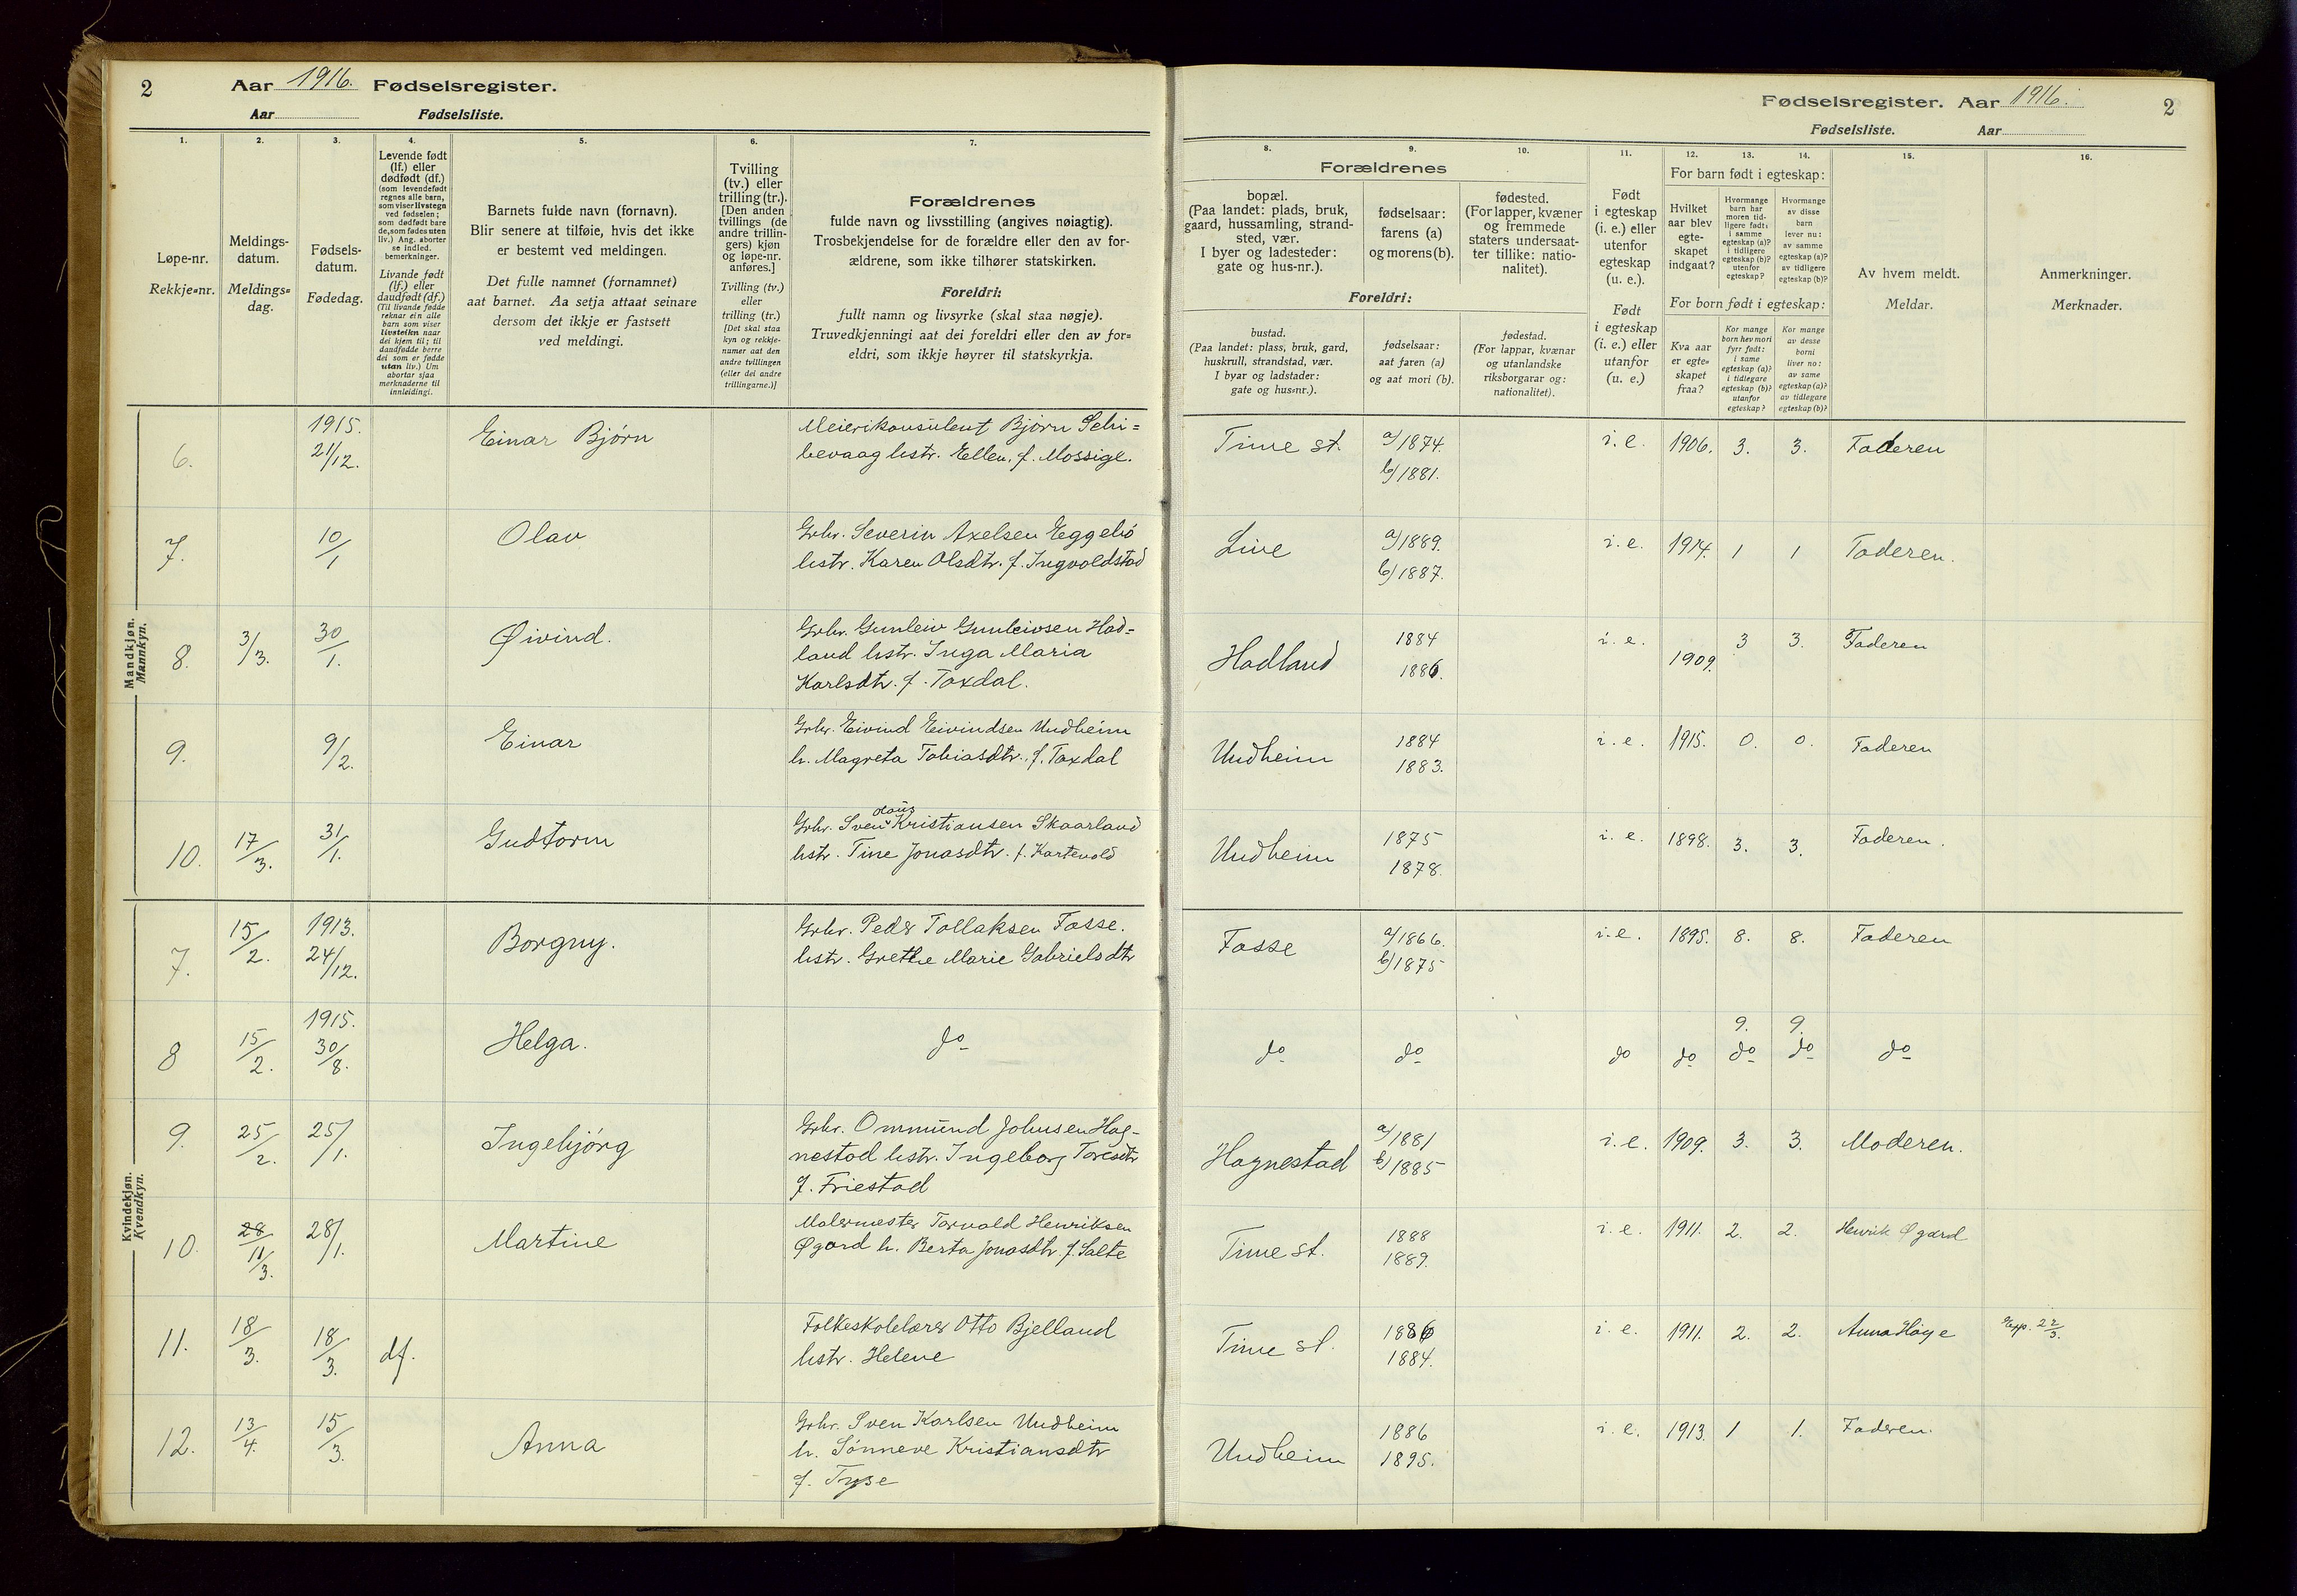 2 Aar 1916. Fødselsregister.
Aar Fødselsliste.
1. 2. 3. 4. 5. 6. 7.
Løpe-nr.
Rekkje-nr.
Meldings-
datum.
Meldings-
dag.
Fødsels-
datum.
Fødedag.
Levende født
(lf.) eller
dødfødt (df.)
(som levendefødt
regnes alle barn,
som viser livstegn
ved fødselen;
som dødfødt bare
de, som fødes uten
liv.) Ang. aborter
se indled.
bemerkninger.
Livande født
(lf.) eller
daudfødt (df.)
(Til livande fødde
reknar ein alle
barn som viser
livsteikn naar
dei kjem til; til
daudfødde berre
dei som er fødde
utan liv.) Um
abortar sjaa
merknaderne til
innleidingi.
Barnets fulde navn (fornavn).
Blir senere at tilføie, hvis det ikke
er bestemt ved meldingen.
Det fulle namnet (fornamnet)
aat barnet. Aa setja attaat seinare
dersom det ikkje er fastsett
ved meldingi.
Tvilling
(tv.) eller
trilling (tr.).
[Den anden
tvillings (de
andre trillin-
gers) kjøn
og løpe-nr.
anføres.]
Tvilling (tv.)
eller
trilling (tr.)
[Det skal staa
kyn og rekkje-
numer aat den
andre tvillingen
(eller dei andre
trillingarne.)]
Forældrenes
fulde navn og livsstilling (angives nøiagtig).
Trosbekjendelse for de forældre eller den av for-
ældrene, som ikke tilhører statskirken.
Foreldri:
fullt namn og livsyrke (skal staa nøgje).
Truvedkjenningi aat dei foreldri eller den av for-
eldri, som ikkje høyrer til statskyrkja.
Mandkjøn.
Mannkyn.
6. 1915. 21/12. Einar Bjørn Meierikonsulent Bjørn Schi=
bevaag hstr. Ellen, f. Mossige.
7. 10/1 Olav Grbr. Severin Axelsen Eggebö
hstr. Karen Olsdtr. f. Ingvoldstad
8. 3/3. 30/1. Øivind. Grbr. Gunleiv Gunleivsen Had=
land hstr. Inga Maria
Karlsdtr. f. Taxdal.
9. 9/2. Einar Grbr. Eivind Eivindsen Undheim
h. Magreta Tobiasdtr. f. Taxdal
10. 17/3. 31/1. Gudtorm Grbr. Sven olaus Kristiansen Skaarland
hstr. Tine Jonasdtr. f. Kartevold
Kvindekjøn.
Kvendkyn.
7. 15/2. 1913. 24/12. Borgny. Grbr. Peder Tollaksen Fosse.
hstr. Grethe Marie Gabrielsdtr
8 15/2. 1915. 30/8. Helga. do
9. 25/2. 25/1. Ingebjörg Grbr. Ommund Johnsen Hog-
nestad hstr. Ingeborg Toresdtr
f. Friestad
10. 28/ 11/3. 28/1. Martine Malermester Torvald Henriksen
Øgard h. Berta Jonasdtr. f. Salte
11. 18/3. 18/3. df. Folkeskolelærer Otto Bjelland
hstr. Helene
12. 13/4. 15/3. Anna Grbr. Sven Karlsen Undheim
h. Sönneve Kristiansdtr
f. Tyse
Fødselsregister. Aar 1916. 2
Fødselsliste. Aar
8. 9. 10. 11. 12. 13. 14. 15. 16.
Forældrenes
bopæl.
(Paa landet: plads, bruk,
gaard, hussamling, strand-
sted, vær.
I byer og ladesteder:
gate og hus-nr.).
fødselsaar:
farens (a)
og morens (b).
fødested.
(For lapper, kvæner
og fremmede
staters undersaat-
ter tillike: natio-
nalitet).
Foreldri:
bustad.
(Paa landet: plass, bruk, gard,
huskrull, strandstad, vær.
I byar og ladstader:
gate og hus-nr.).
fødselsaar:
aat faren (a)
og aat mori (b).
fødestad.
(For lappar, kvænar
og utanlandske
riksborgarar og:
nationalitet).
Født
i egteskap
(i. e.) eller
utenfor
egteskap
(u. e.).
Født
i egteskap
(i. e.) eller
utanfor
(u. e.)
For barn født i egteskap:
Hvilket
aar blev
egte-
skapet
indgaat?
Hvormange
barn har
moren tid-
ligere født:
i samme
egteskap (a)?
i tidligere
egteskap (b)?
utenfor
egteskap?
Hvormange
av disse
barn
lever nu:
av samme
egteskap (a)?
av tidligere
egteskap (b)?
For born født i egteskap:
Kva aar
er egte-
skapet
fraa?
Kor mange
born hev mori
fyrr født:
i same
egteskap (a)?
i tidlegare
egteskap (b)?
utanfor
egteskap?
Kor mange
av desse
borni
liver no:
av same
egteskap (a)?
av tidlegare
egteskap (b)?
Av hvem meldt.
Meldar.
Anmerkninger.
Merknader.
Time st. a/1874. b/1881. i. e. 1906. 3. 3. Faderen
Line a/1889. b/1887. i. e. 1914. 1 1 Faderen.
Hadland 1884 1886. i. e. 1909. 3 3. Faderen
Undheim 1884 1883. i. e. 1915. 0. 0. Faderen
Undheim 1875 1878. i. e. 1898. 3. 3. Faderen.
Fosse a/1866. b/1875 i. e. 1895. 8. 8. Faderen
do do do do 9. do 9. do do
Hognestad a/1881 b/1885 i. e. 1909. 3. 3. Moderen.
Time st. 1888 1889. i. e. 1911. 2. 2. Henrik Øgard
Time st. 1886 1884. i. e. 1911. 2. 2. Anna Høye Exp. 22/3.
Undheim 1886 1895. i. e. 1913. 1 1. Faderen.